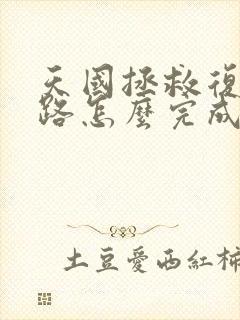 天國拯救復
路怎麼完成
土豆愛西紅柿